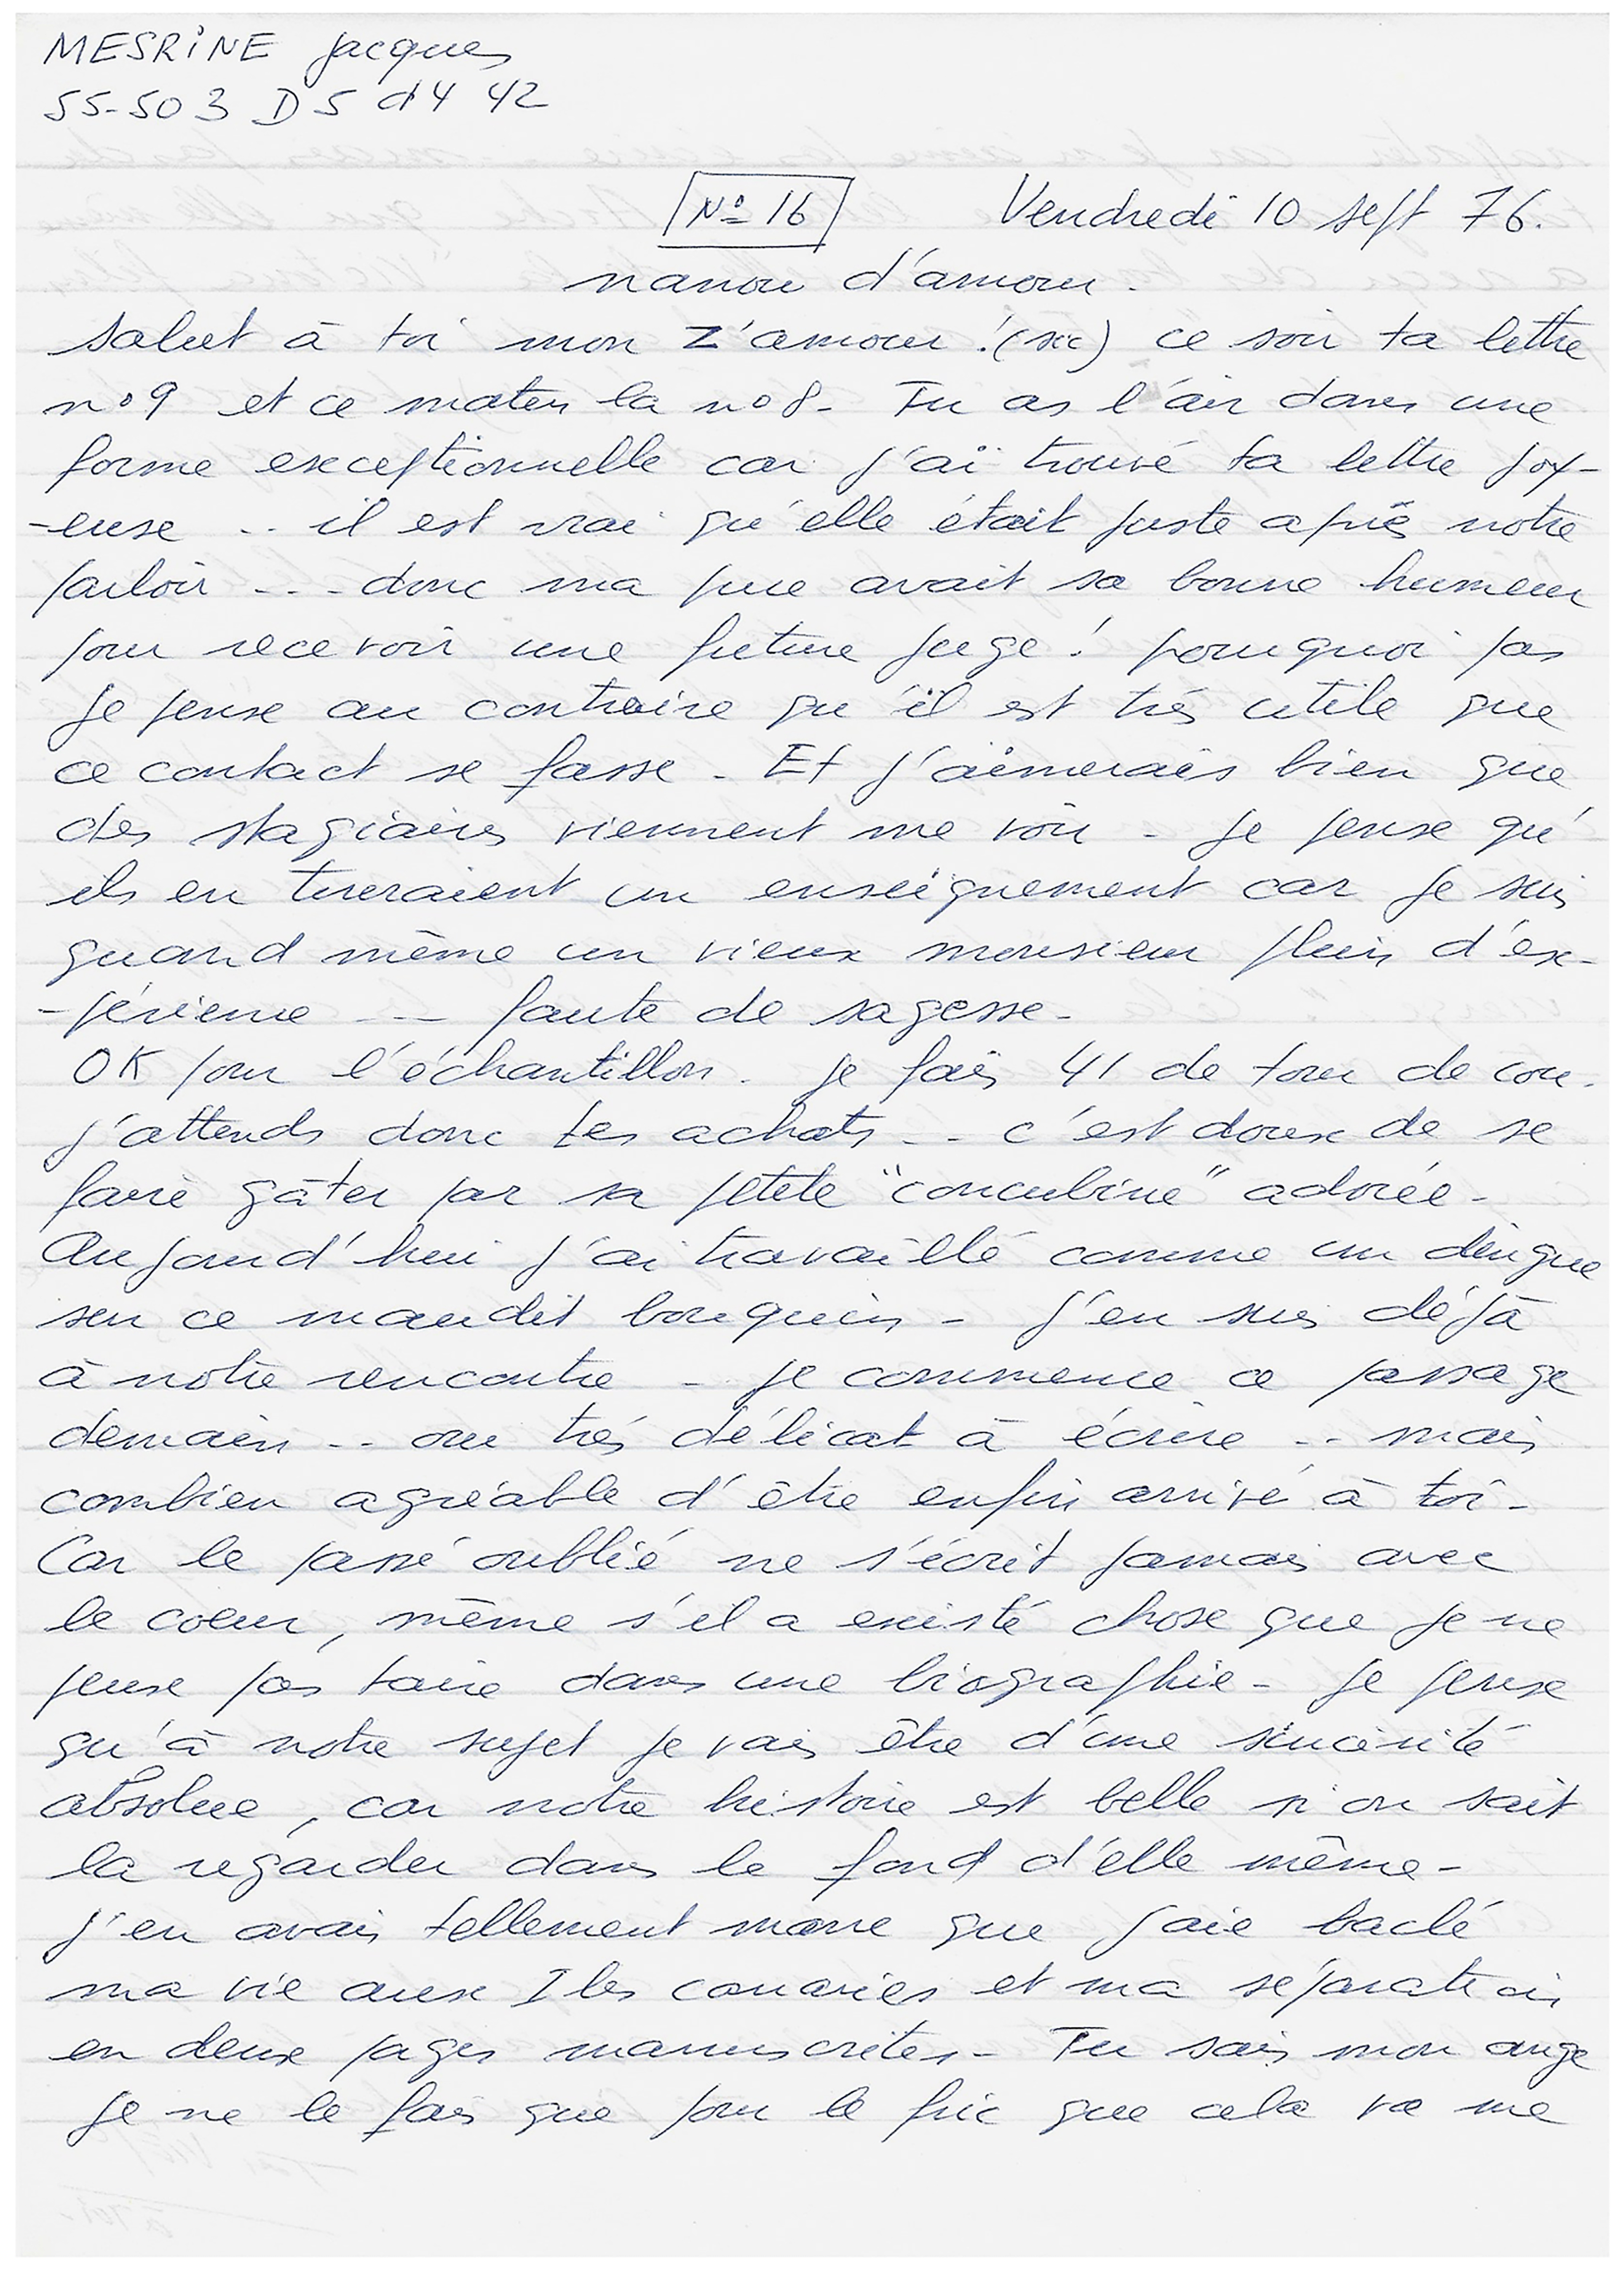 MESRINE Jacques
55-503 D5 d4 42
N° 16 Vendredi 10 sept 76.
nanou d'amour.
Salut à toi mon Z'amour ! (sic) ce soir ta lettre
n° 9 et ce matin la n° 8 - Tu as l'air dans une
forme exceptionnelle car j'ai trouvé ta lettre joy-
-euse .. il est vrai qu'elle était juste après notre
parloir ... donc ma puce avait sa bonne humeur
pour recevoir une future juge ! pourquoi pas
je pense au contraire qu'il est très utile que
ce contact se fasse - Et j'aimerais bien que
des stagiaires viennent me voir - je pense qu'
ils en tireraient un enseignement car je suis
quand même un vieux monsieur plein d'ex-
-périence --- faute de sagesse -
OK pour l'échantillon. je fais 41 de tour de cou.
j'attends donc tes achats -- c'est doux de se
faire gâter par sa petite "concubine" adorée -
Aujourd'hui j'ai travaillé comme un dingue
sur ce maudit bouquin - j'en suis déjà
à notre rencontre - je commence ce passage
demain -- oui très délicat à écrire -- mais
combien agréable d'être enfin arrivé à toi -
Car le passé oublié ne s'écrit jamais avec
le coeur, même s'il a existé chose que je ne
peux pas taire dans une biographie - je pense
qu'à notre sujet je vais être d'une sincérité
absolue, car notre histoire est belle si on sait
la regarder dans le fond d'elle même -
j'en avais tellement marre que j'aie baclé
ma vie aux Iles canaries et ma séparation
en deux pages manuscrites - Tu sais mon ange
je ne le fais que pour le fric que cela va me